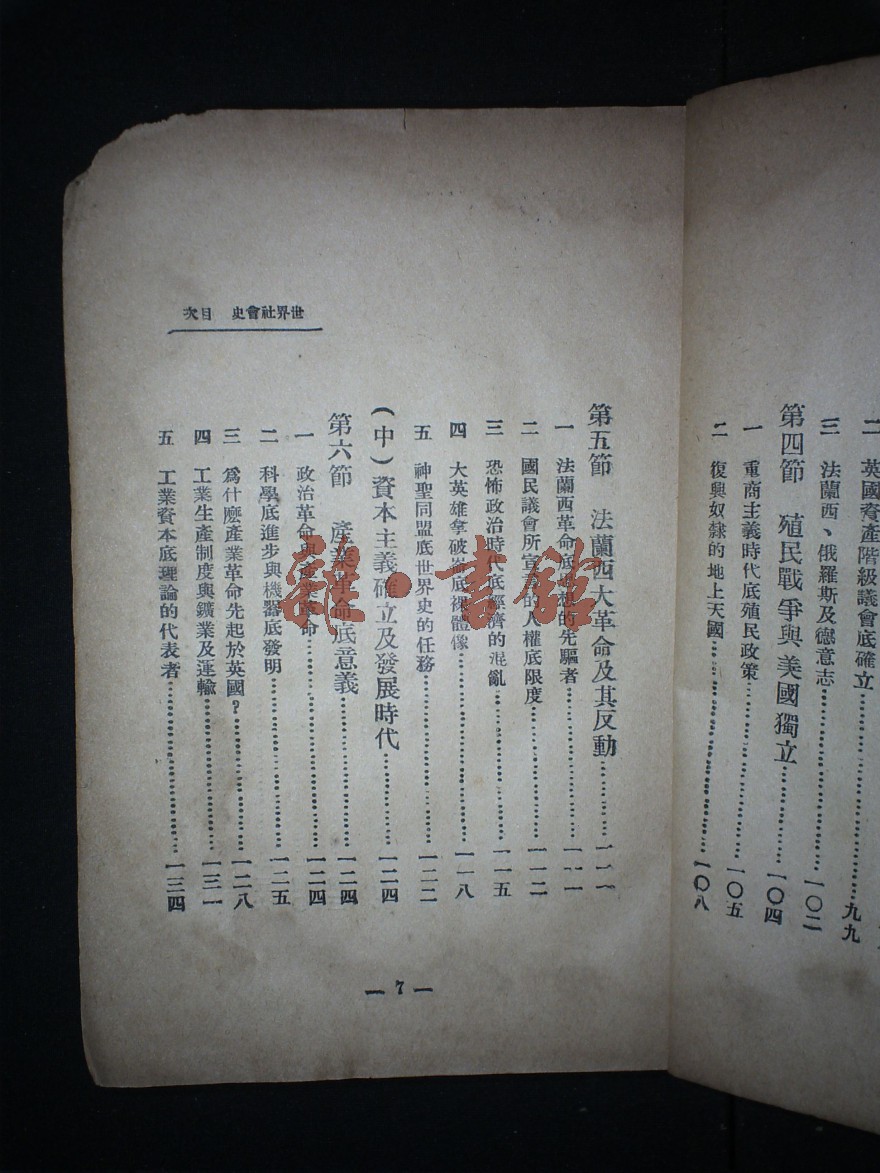 二　英國資產階級議會底確立……九九
三　法蘭西、俄羅斯及德意志……一〇二
第四節　殖民戰爭與美國獨立……一〇四
一　重商主義時代底殖民政策……一〇五
二　復興奴隸的地上天國……一〇八
世界社會史　目次
第五節　法蘭西大革命及其反動……一一一
一　法蘭西革命底思想的先驅者……一一一
二　國民議會所宣言的人權底限度……一一二
三　恐怖政治時代底經濟的混亂……一一五
四　大英雄拿破崙底裸體像……一一八
五　神聖同盟底世界史的任務……一二二
(中)資本主義確立及發展時代……一二四
第六節　產業革命底意義……一二四
一　政治革命與產業革命……一二四
二　科學底進步與機器底發明……一二五
三　爲什麽產業革命先起於英國?……一二八
四　工業生產制度與鑛業及運輸……一三一
五　工業資本底理論的代表者……一三四
— 7 —
雜·書館